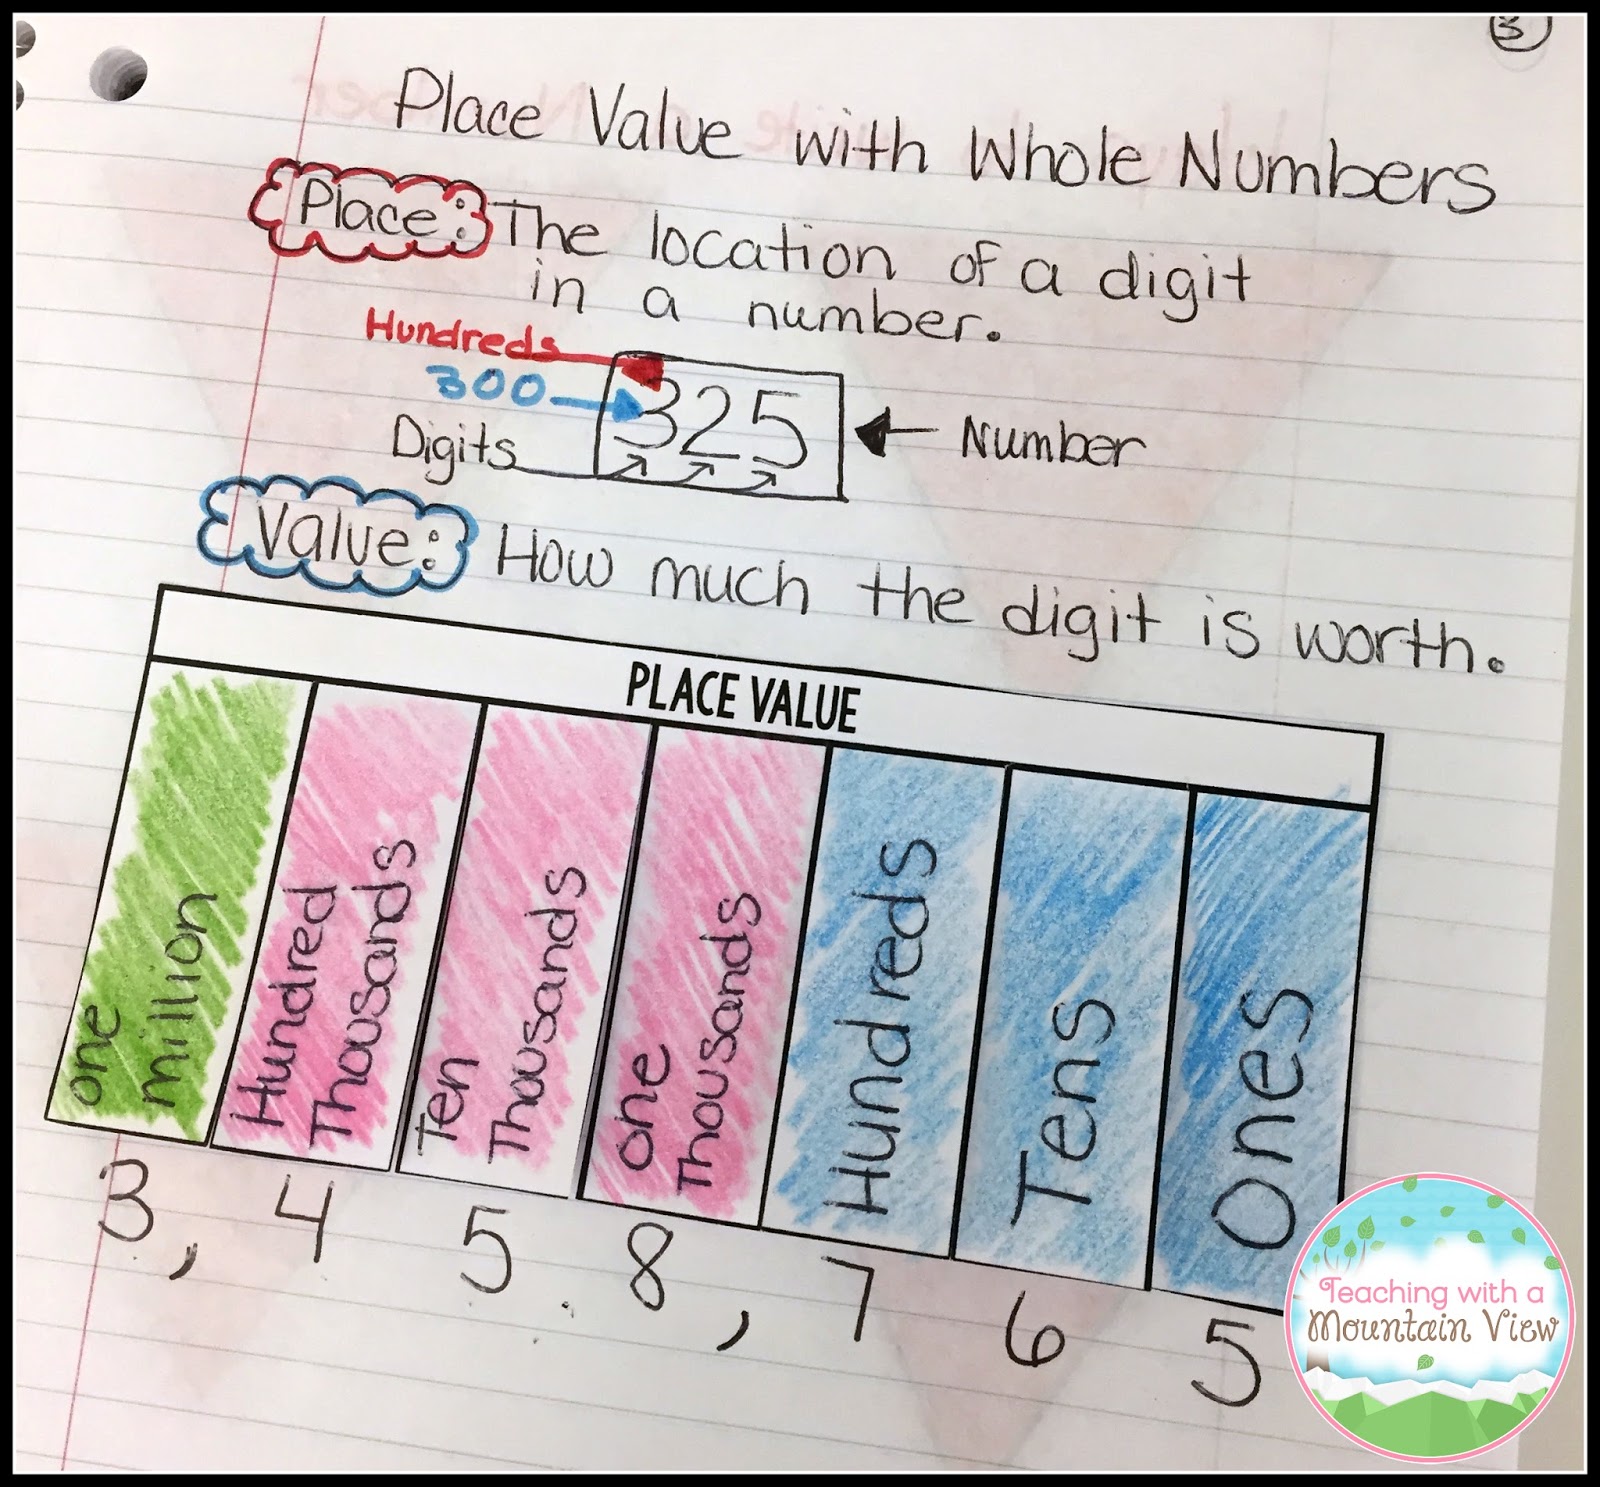 3
Place Value with Whole Numbers
Place: The location of a digit
in a number.
Hundreds
300
325
Digits
Number
Value: How much the digit is worth.
PLACE VALUE
one
million
Hundred
Thousands
Ten
Thousands
one
Thousands
Hundreds
Tens
Ones
3, 4 5 8, 7 6 5
Teaching with a
Mountain View